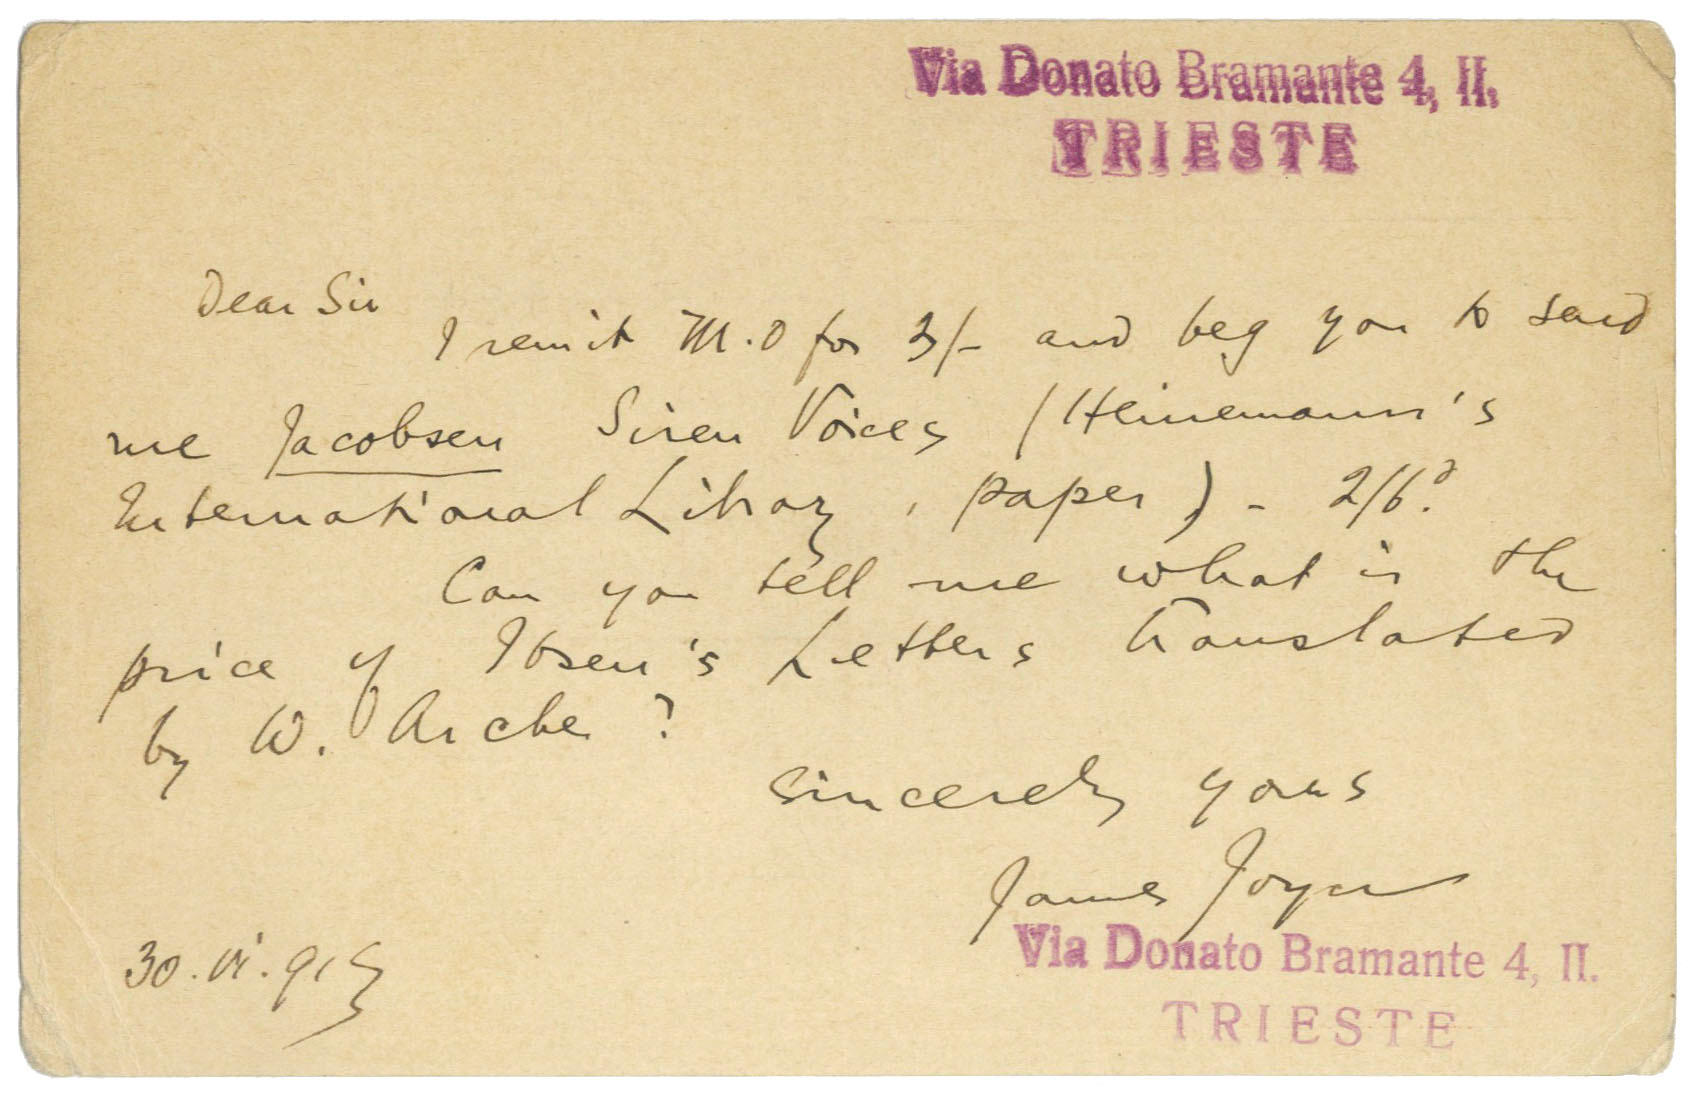 Via Donato Bramante 4, II.
TRIESTE
Dear Sir
I remit M.O for 3/- and beg you to send
me Jacobsen Siren Voices (Heinemann's
International Library, paper) - 2/6d.
Can you tell me what is the
price of Ibsen's Letters translated
by W. Archer?
Sincerely yours
James Joyce
Via Donato Bramante 4, II.
TRIESTE
30.vi.913